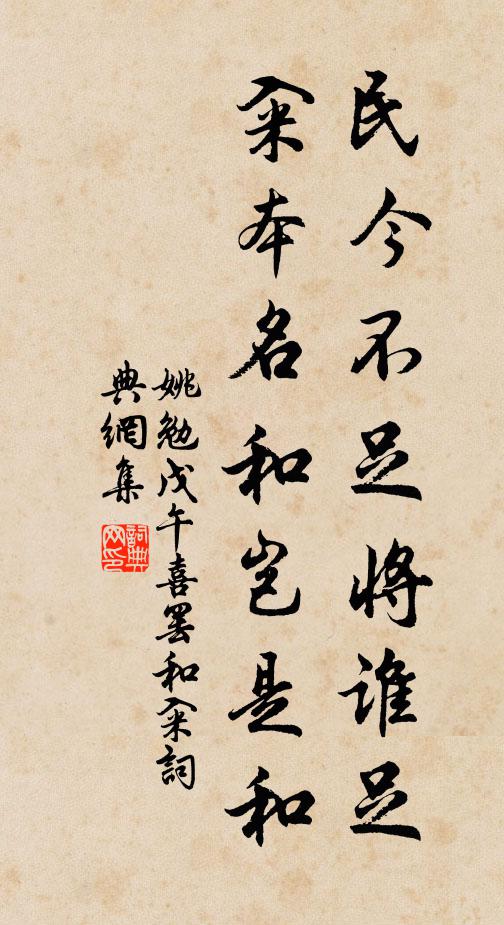 民今不足將誰足
籴本名和岂是和
姚勉戊午喜罢和籴詞
典網集
詞典
网印